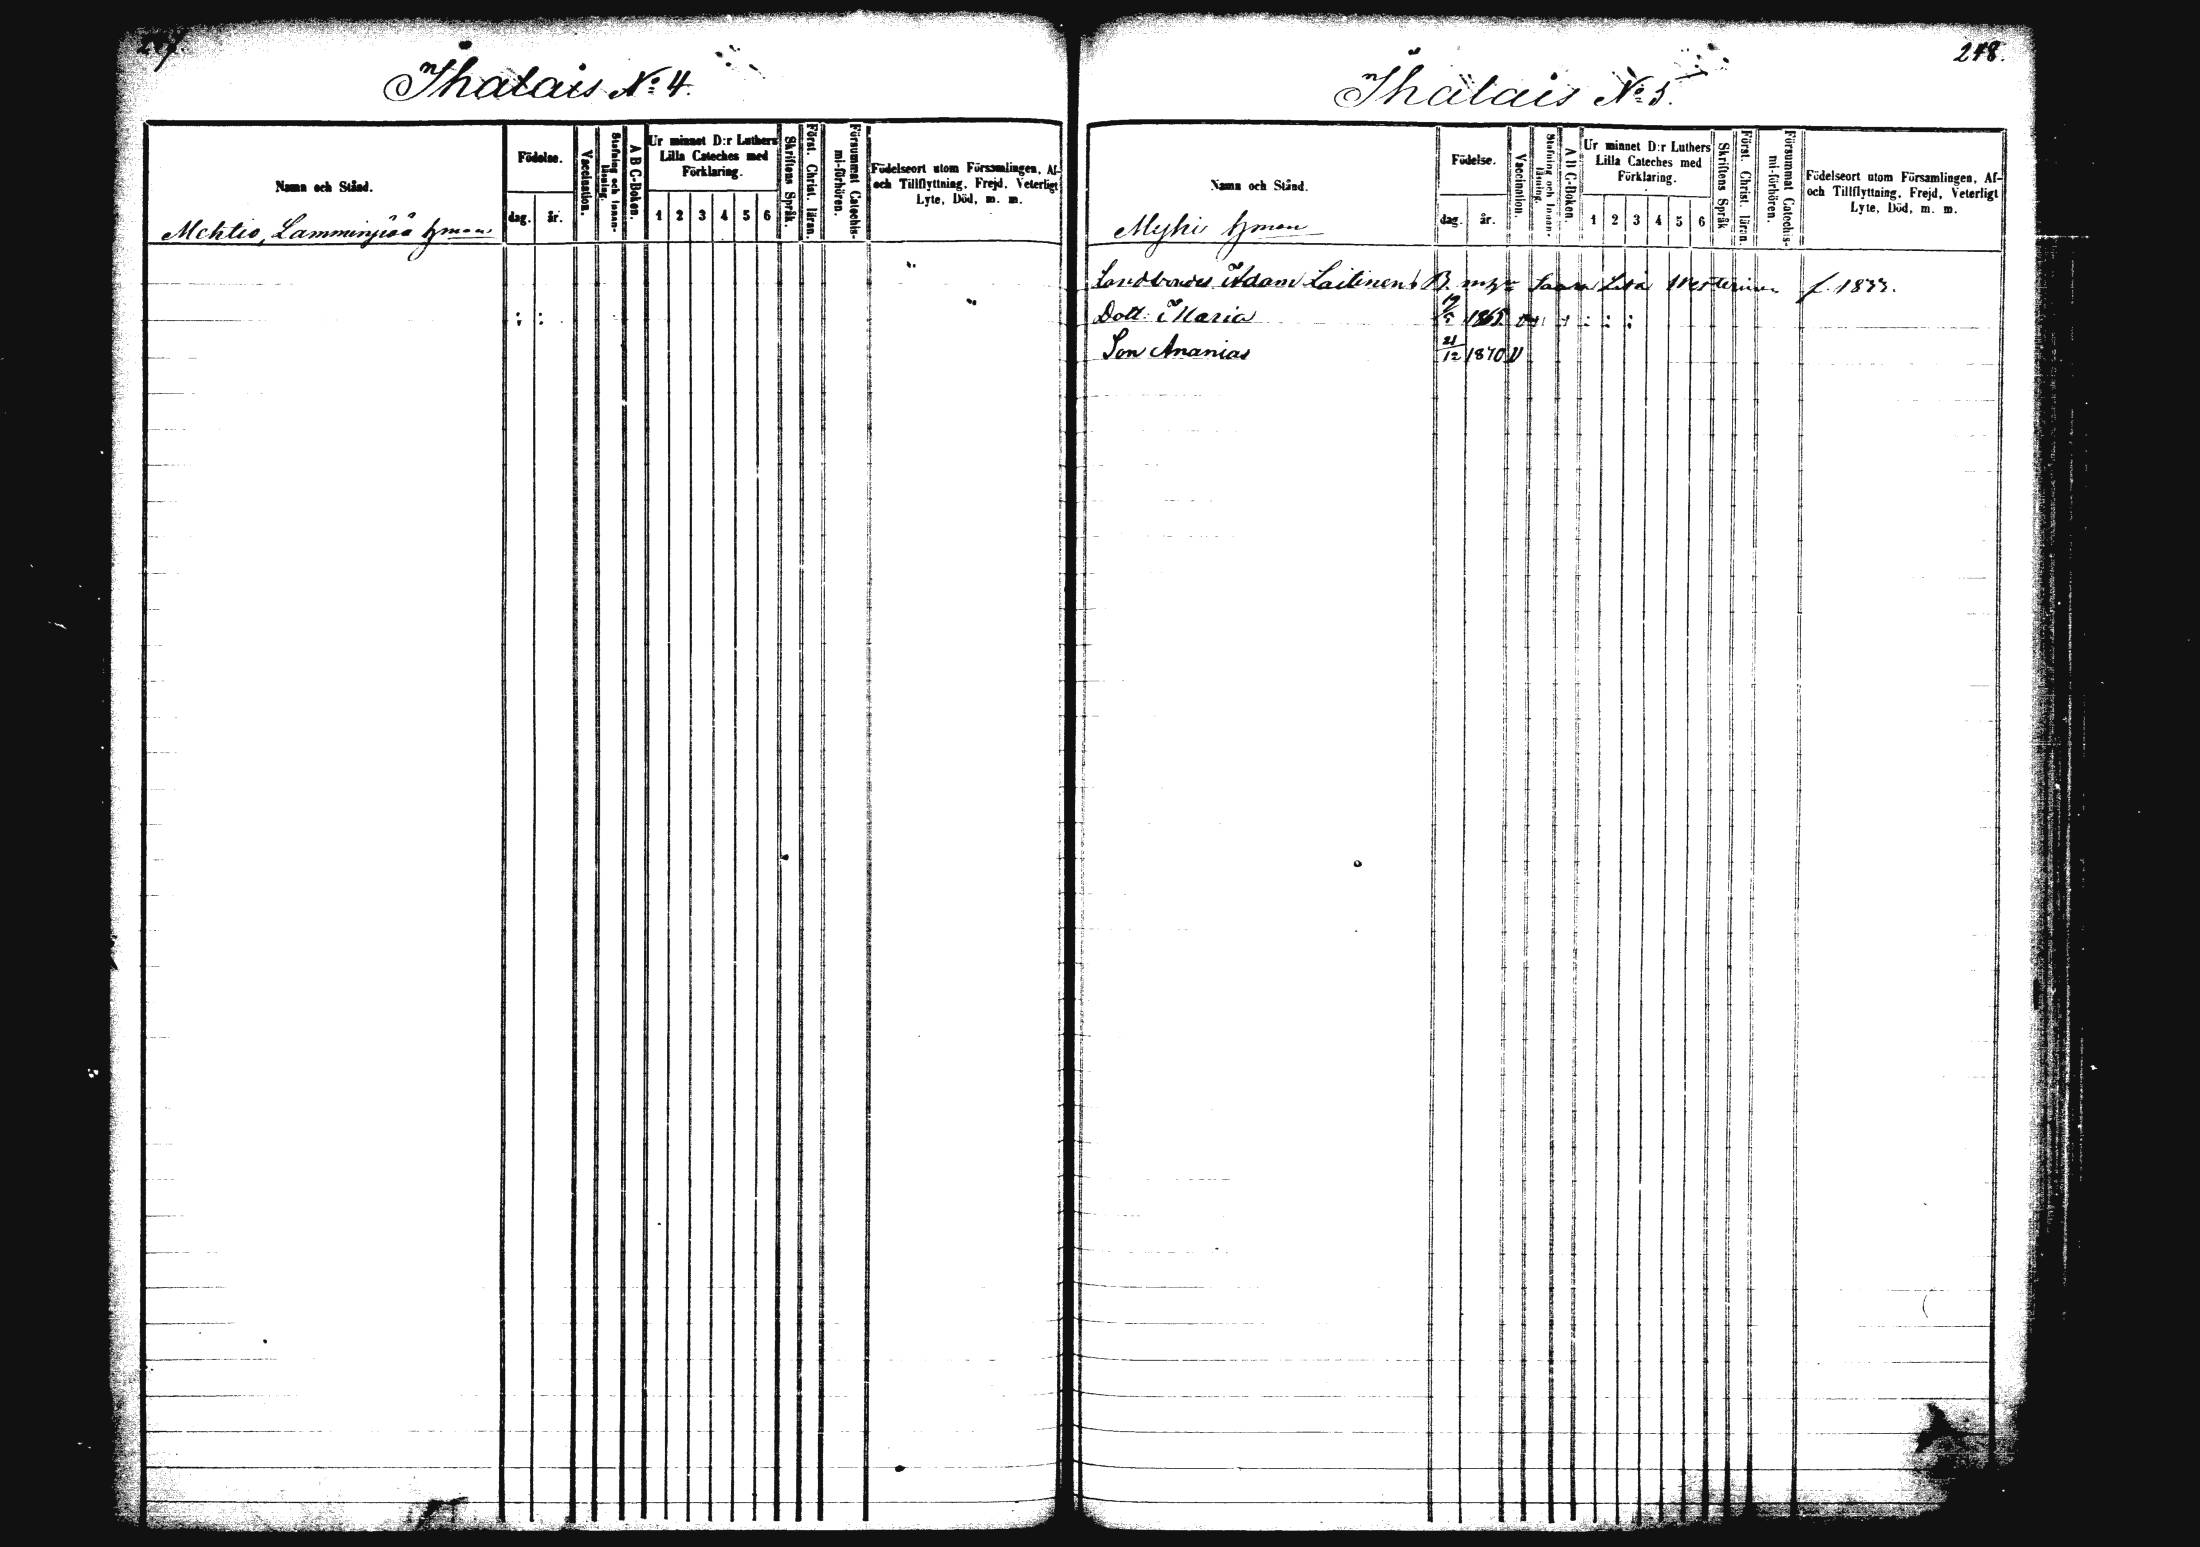 Ihalais № 4.
Namn och Stånd.
Födelse.
dag. år.
Vaccination.
Stafning och Innan-läsning.
A B C-Boken.
Ur minnet D:r Luthers
Lilla Cateches med
Förklaring.
1 2 3 4 5 6
Skriftens Språk.
Först. Christ. läran.
Försummat Catechis-mi-förhören.
Födelseort utom Församlingen, Af-
och Tillflyttning, Frejd, Veterligt
Lyte, Död, m. m.
Mehtio, Lamminpää
248.
Ihalais № 5.
Namn och Stånd.
Födelse.
dag. år.
Vaccination.
Stafning och Innan-läsning.
A B C-Boken.
Ur minnet D:r Luthers
Lilla Cateches med
Förklaring.
1 2 3 4 5 6
Skriftens Språk
Först. Christ. läran.
Försummat Catechis-mi-förhören.
Födelseort utom Församlingen, Af-
och Tillflyttning, Frejd, Veterligt
Lyte, Död, m. m.
Myhi
Adam Laitinens B. Saara Lisa f. 1833.
Dott. Maria 1865
Son Ananias 21/12 1870 V